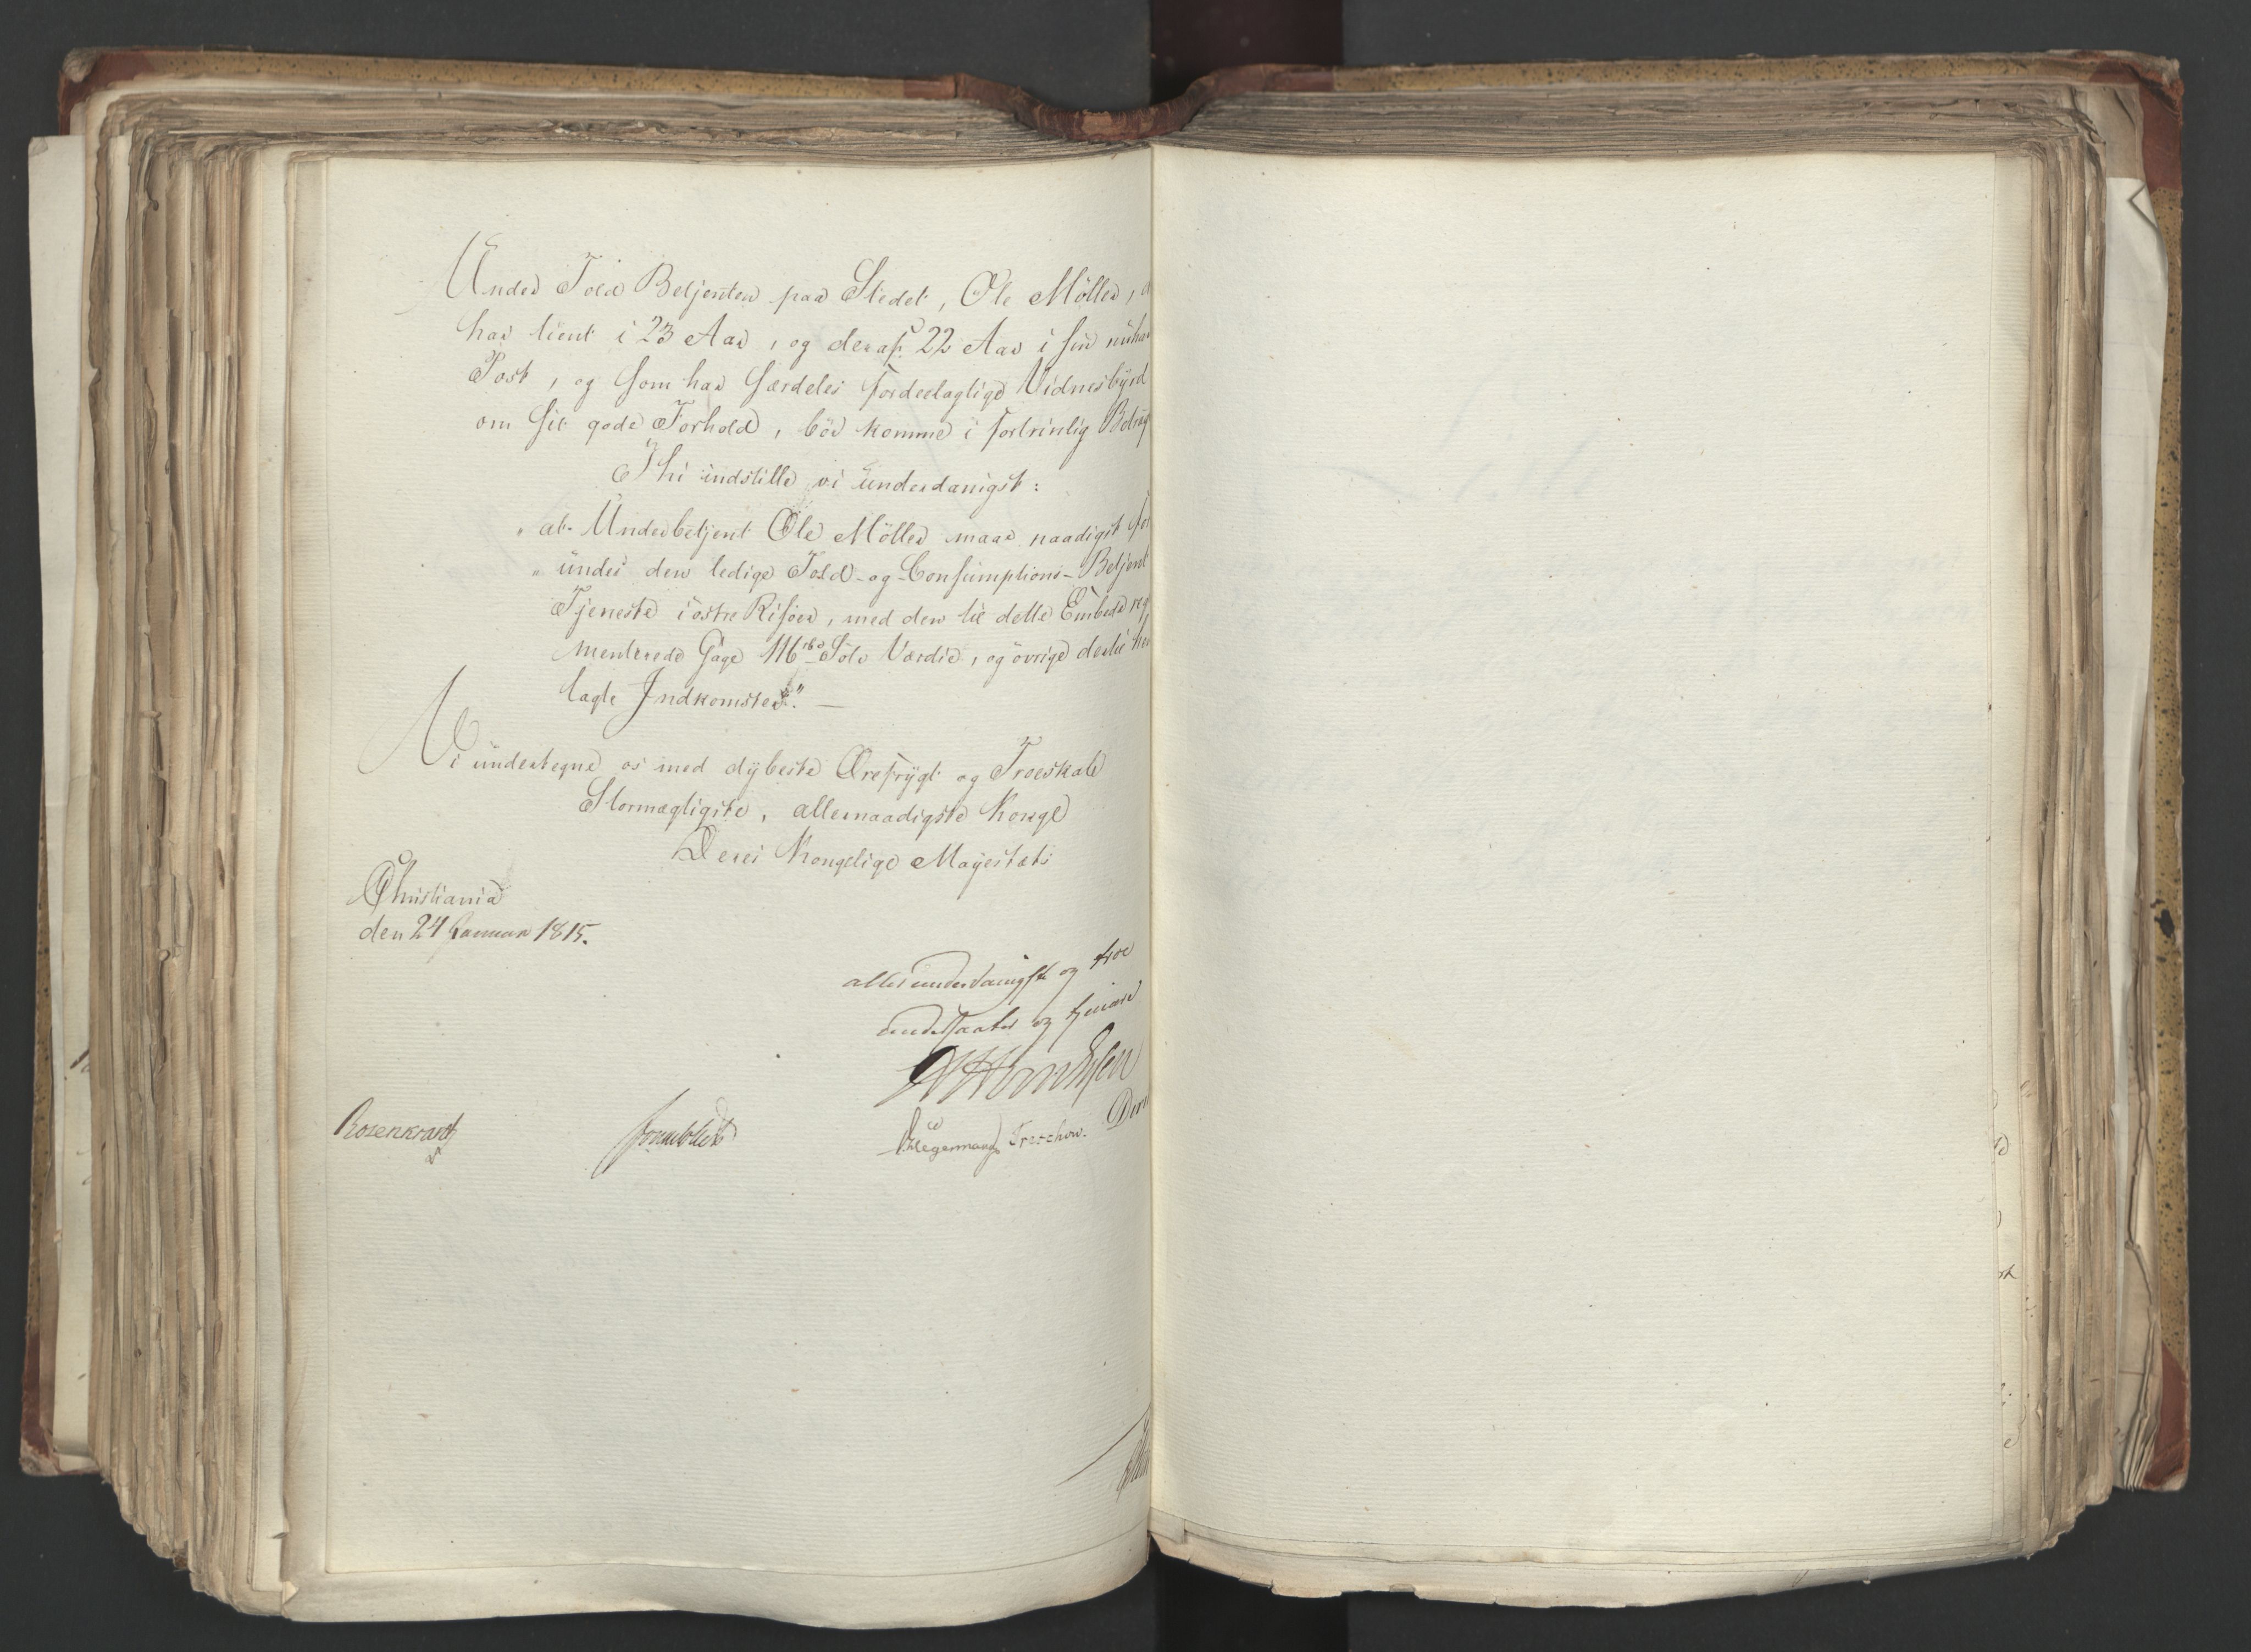 Under Told Betjenten paa Stedet, Ole Möller, d
har tient i 23 Aar, og deraf 22 Aar i sin nuha
Post, og som har særdeles fordeelagtige Vidnesbyrd
om sit gode Forhold, bör komme i fortrinlig Betrag
Thi indstille vi underdanigst:
" at Underbetjent Ole Möller maae naadigst for
" undes den ledige Told- og Consumptions- Betjent
Tjeneste i östre Risöer, med den til dette Embede reg
menterede Gage 116 rbd Sölv Værdie, og övrige dertil hen
lagte Indkomster." —
Vi undertegne os med dybeste Ærefrygt og Troeskab
Stormægtigste, allernaadigste Konge
Deres Kongelige Mayestæts
Christiania
den 24 Januar 1815.
allerunderdanigste og troe
undersaatter og tjenere
Rosenkrantz
Sommerhielm
Hegermann
Treschow.